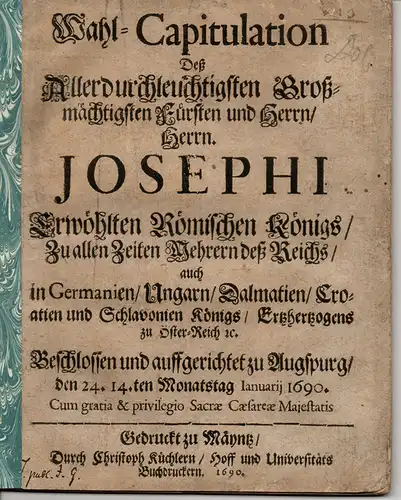 Wahl-Capitulation
Deß
Allerdurchleuchtigsten Groß-
mächtigsten Fürsten und Herrn/
Herrn.
JOSEPHI
Erwöhlten Römischen Königs/
Zu allen Zeiten Mehrern deß Reichs/
auch
in Germanien/ Ungarn/ Dalmatien/ Cro-
atien und Schlavonien Königs/ Ertzhertzogens
zu Öster-Reich ꝛc.
Beschlossen und auffgerichtet zu Augspurg/
den 24. 14.ten Monatstag Ianuarij 1690.
Cum gratia & privilegio Sacræ Cæsareæ Majestatis
Gedruckt zu Mäyntz/
Durch Christoph Küchlern/ Hoff und Universitäts
Buchdruckern. 1690.
publ. I. G.